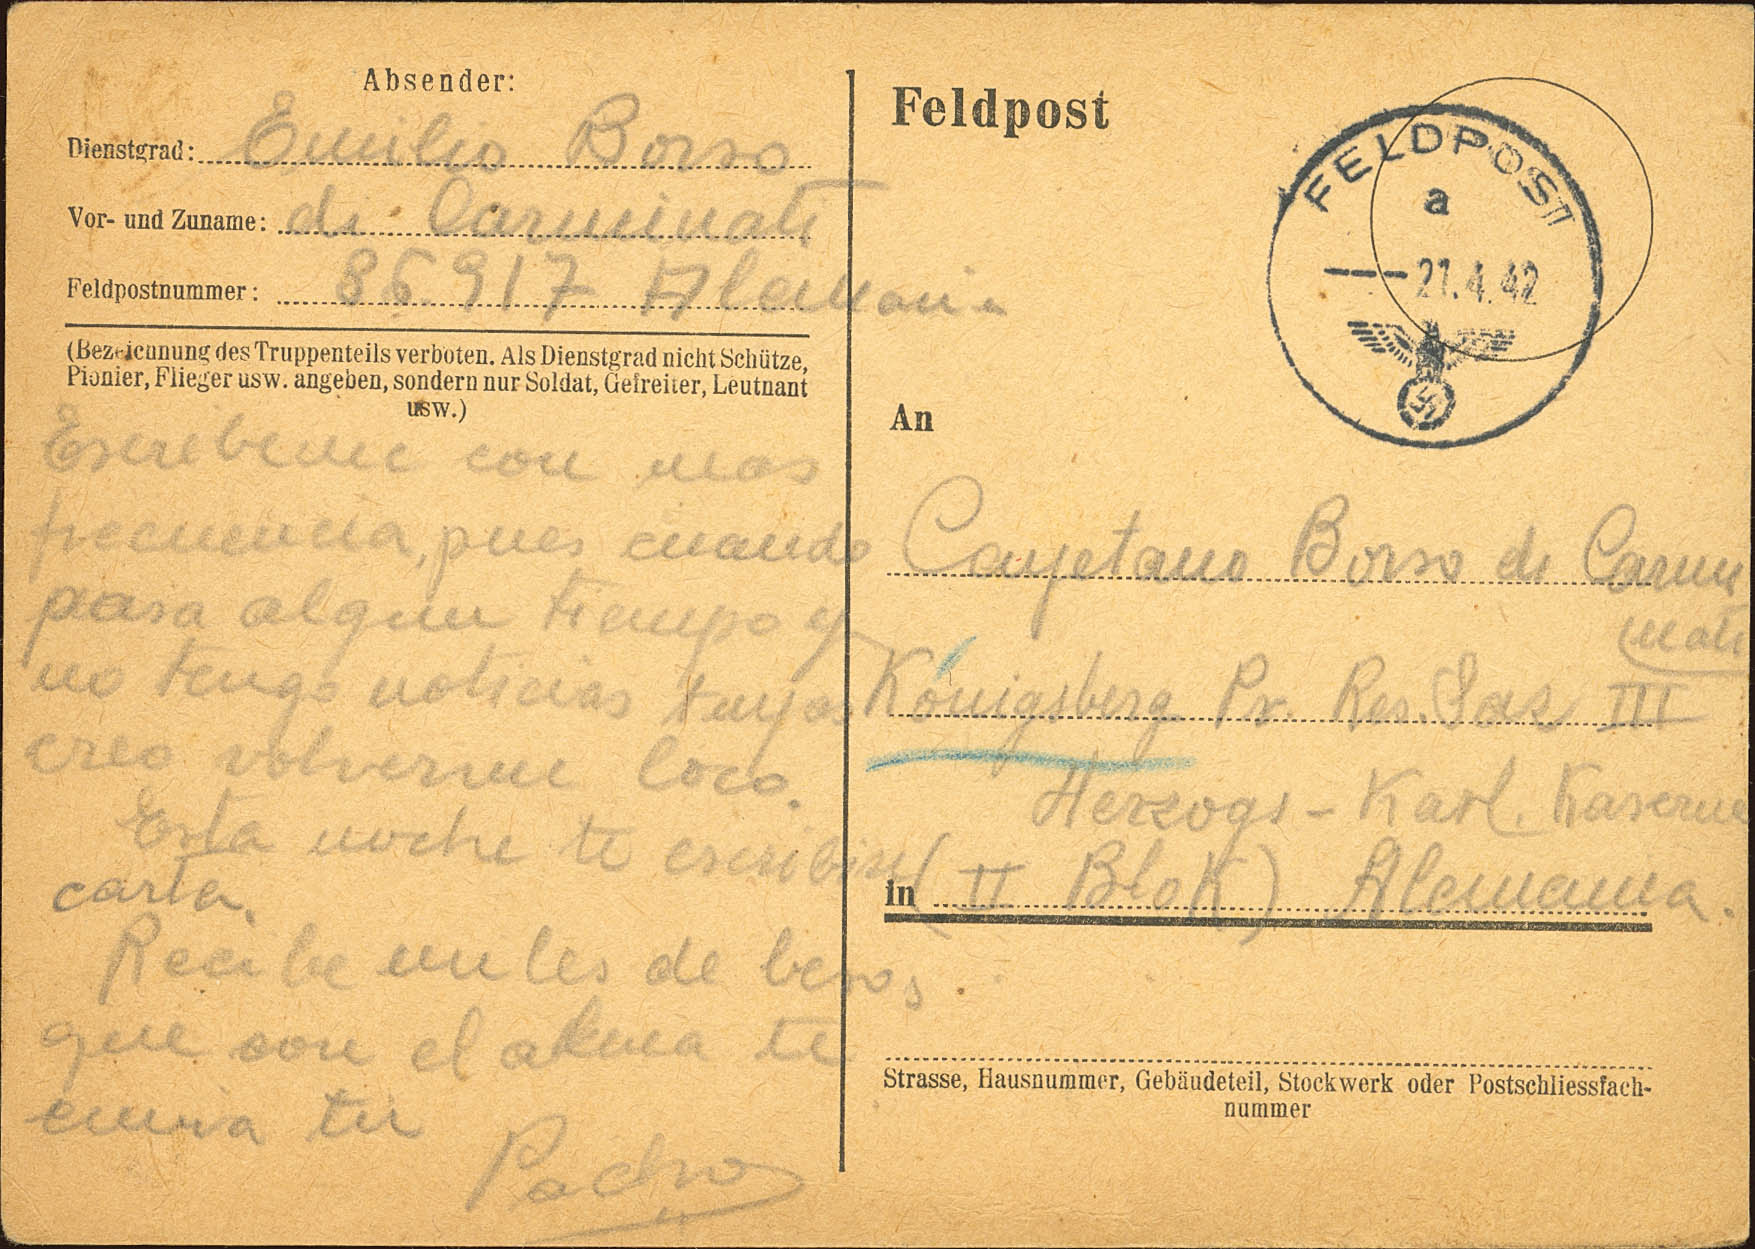 Absender:
Dienstgrad: Emilio Borso
Vor- und Zuname: di Carminati
Feldpostnummer: 86917 Alemania
(Bezeichnung des Truppenteils verboten. Als Dienstgrad nicht Schütze,
Pionier, Flieger usw. angeben, sondern nur Soldat, Gefreiter, Leutnant
usw.)
Escribeme con mas
frecuencia, pues cuando
pasa algun tiempo y
no tengo noticias tuyas
creo volverme loco.
Esta noche te escribiré
carta.
Recibe miles de besos
que con el alma te
envia tu
Padre
Feldpost
FELDPOST
a
--- 21.4.42
An
Cayetano Borso di Carmi
nati
Königsberg Pr. Res. Laz III
Herzogs - Karl. Kaserne
in (II Blok) Alemania.
Strasse, Hausnummer, Gebäudeteil, Stockwerk oder Postschliessfach-
nummer